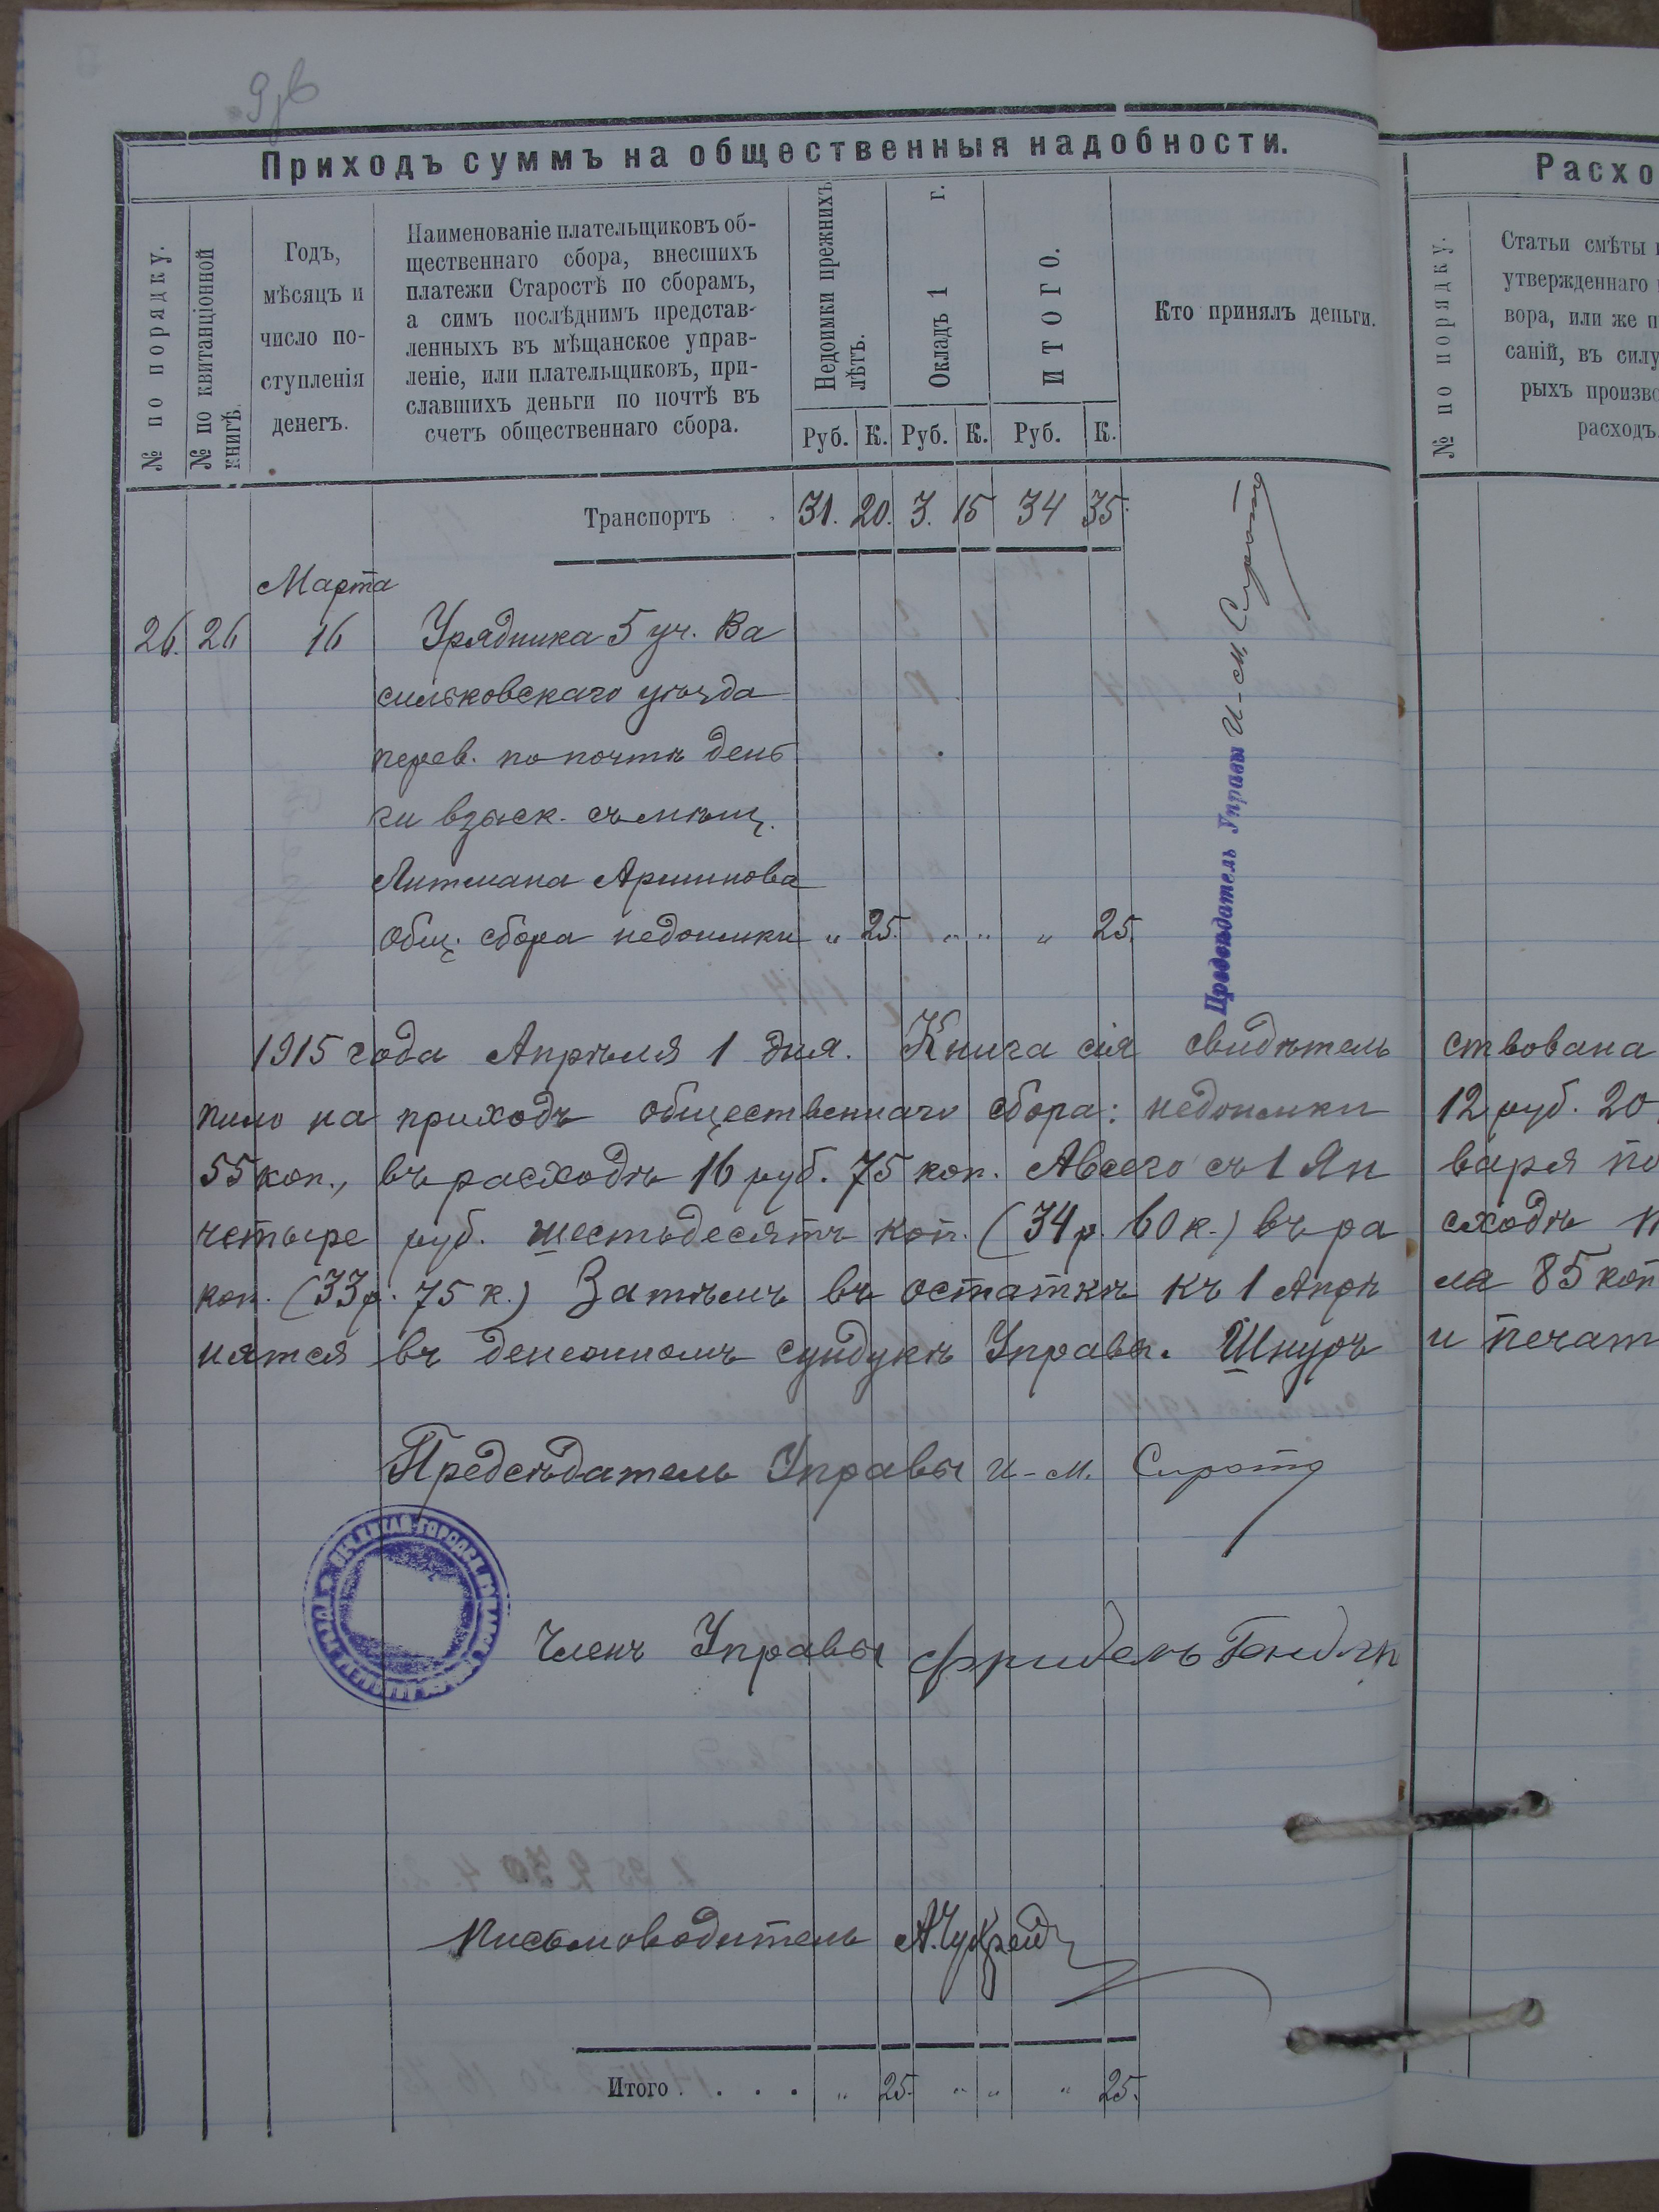 Приходъ суммъ на общественныя надобности.
№ по порядку.
№ по квитанціонной
книгѣ.
Годъ,
мѣсяцъ и
число по-
ступленія
денегъ.
Наименованіе плательщиковъ об-
щественнаго сбора, внесшихъ
платежи Старостѣ по сборамъ,
а симъ послѣднимъ представ-
ленныхъ въ мѣщанское управ-
леніе, или плательщиковъ, при-
славшихъ деньги по почтѣ въ
счетъ общественнаго сбора.
Недоимки прежнихъ
лѣтъ.
Окладъ 1 г.
ИТОГО.
Руб. К. Руб. К. Руб. К.
Кто принялъ деньги.
Транспортъ 31. 20. 3. 15 34 35.
Марта
26. 26 16 Урядника 5 уч. Ва
сильковскаго уѣзда
перев. по почтѣ день
ги взыск. съ мѣщ.
Литмана Аршинова
Общ. сбора недоимки „ 25. „ „ „ 25.
Предсѣдатель Управы И-М. Сирота
1915 года Апрѣля 1 дня. Книга сія свидѣтель ствована
пило на приходъ общественнаго сбора: недоимки 12 руб. 20
55 коп., въ расходѣ 16 руб. 75 коп. А всего съ 1 Ян варя по
четыре руб. шестьдесятъ коп. (34 р. 60 к.) въ ра сходѣ
коп. (33 р. 75 к.) Затѣмъ въ остаткѣ къ 1 Апрѣ ля 85 коп
нятся въ денежномъ сундукѣ Управы. Шнуръ и печат
Предсѣдатель Управы И-М. Сирота
Членъ Управы Фридель
Письмоводитель А.
Итого . . . . „ 25. „ „ „ 25.
Расхо
№ по порядку.
Статьи смѣты
утвержденнаго
вора, или же п
саній, въ силу
рыхъ произво
расходъ